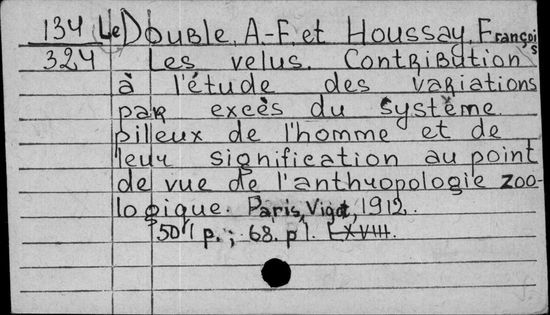 134 Le Double, A.-F. et Houssay, François
324 Les velus. Contribution
à l'étude des variations
par excès du système
pilleux de l'homme et de
leur signification au point
de vue de l'anthropologie zoo-
logique. Paris, Vigot, 1912.
501 p. ; 68. pl. LXVIII.